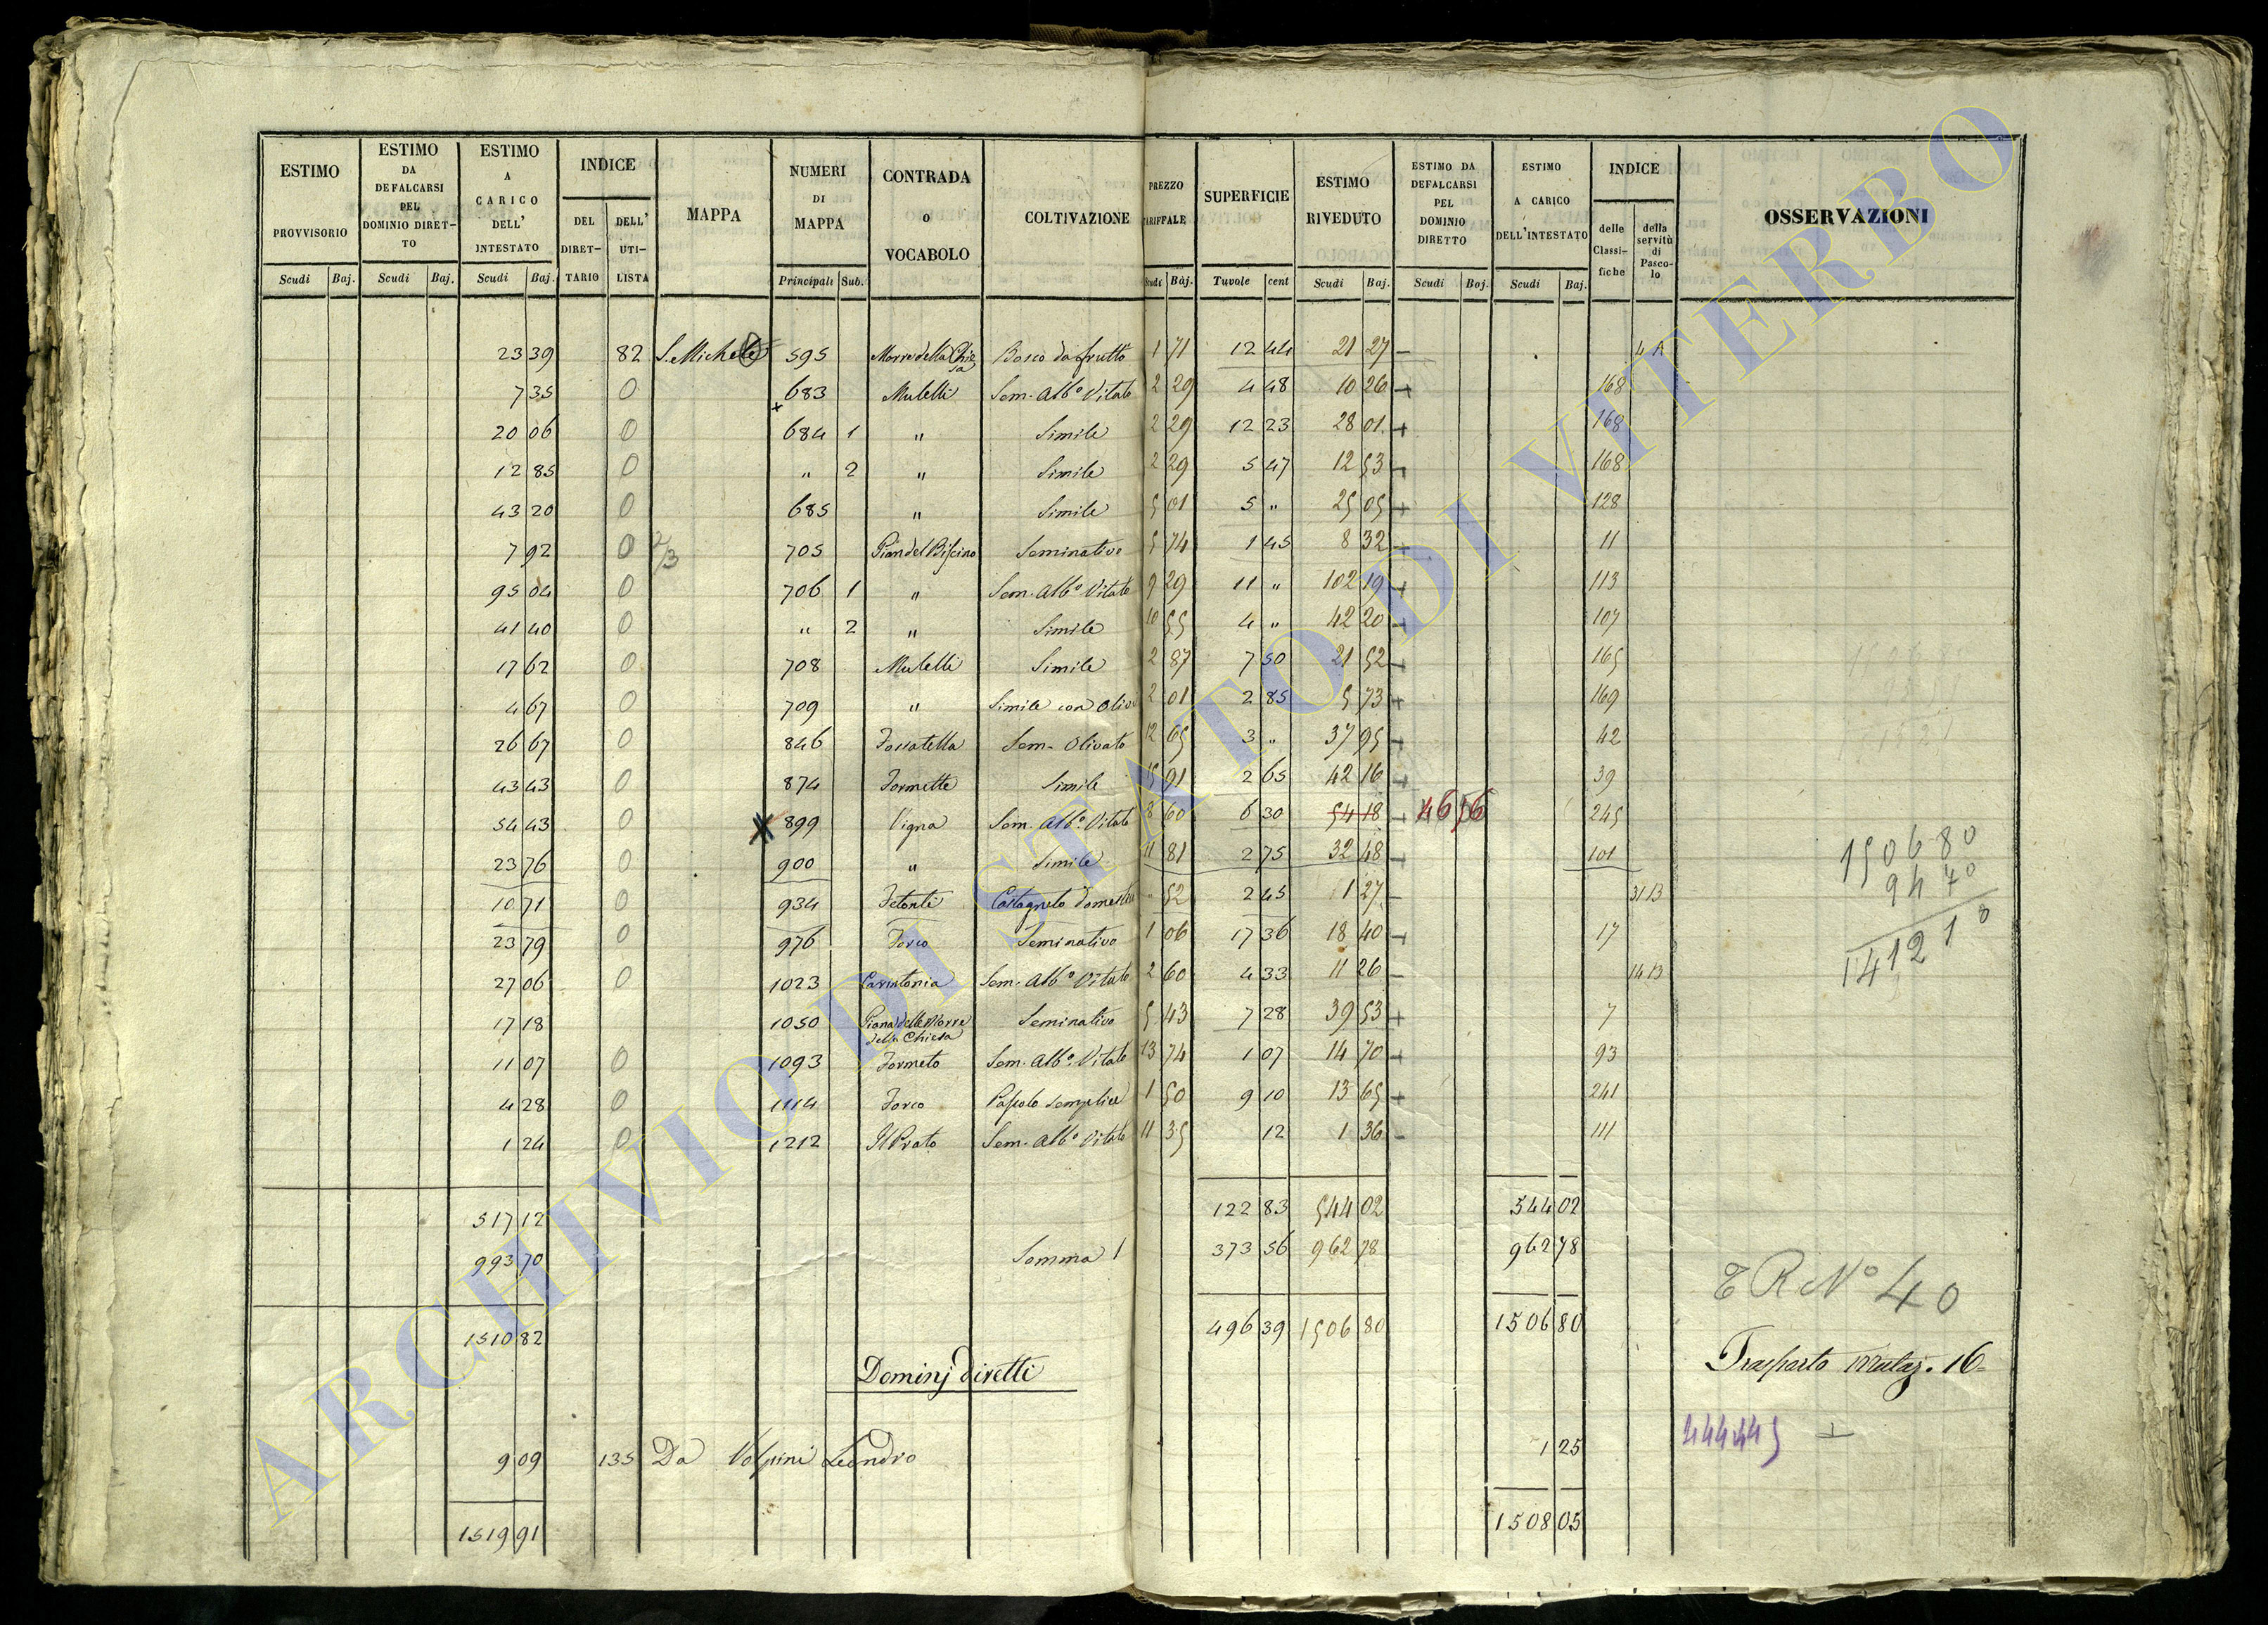 ESTIMO PROVVISORIO | ESTIMO DA DEFALCARSI PEL DOMINIO DIRETTO | ESTIMO A CARICO DELL' INTESTATO | INDICE DEL DIRETTARIO | DELL' UTILISTA | MAPPA | NUMERI DI MAPPA | CONTRADA o VOCABOLO | COLTIVAZIONE | PREZZO TARIFFALE | SUPERFICIE | ESTIMO RIVEDUTO | ESTIMO DA DEFALCARSI PEL DOMINIO DIRETTO | ESTIMO A CARICO DELL'INTESTATO | INDICE delle Classifiche | della servitù di Pascolo | OSSERVAZIONI
Scudi Baj. Scudi Baj. Scudi Baj. Principali Sub. Scudi Baj. Tavole cent Scudi Baj. Scudi Baj. Scudi Baj.
23 39 82 S. Michele 595 Morre della Chiesa Bosco da frutto 1 71 12 44 21 27 - 4 A
7 35 0 683 Muletti Sem. Alb.º Vitato 2 29 4 48 10 26 + 168
20 06 0 684 1 " Simile 2 29 12 23 28 01 + 168
12 85 0 " 2 " Simile 2 29 5 47 12 53 168
43 20 0 685 " Simile 5 01 5 " 25 05 + 128
7 92 0 2/3 705 Seminativo 5 74 1 45 8 32 11
95 04 0 706 1 " Sem. Alb.º Vitato 9 29 11 " 102 19 + 113
41 40 0 " 2 " Simile 10 55 4 " 42 20 107
17 62 0 708 Muletti Simile 2 87 7 50 21 52 165
4 67 0 709 " Simile con Olivi 2 01 2 85 5 73 + 169
26 67 0 846 Fossatella Sem. Olivato 12 65 3 " 37 95 + 42
43 43 0 874 Formette Simile 15 91 2 65 42 16 39
54 43 0 899 Vigna Sem. Alb.º Vitato 8 60 6 30 54 18 46 56 245
23 76 0 900 " Simile 11 81 2 75 32 48 101
10 71 0 934 Castagneto Domestico " 52 2 45 1 27 31 13
23 79 0 976 Forco Seminativo 1 06 17 36 18 40 17
27 06 0 1023 Sem. Alb.º Vitato 2 60 4 33 11 26 - 14 13
17 18 1050 Piana delle Morre della Chiesa Seminativo 5 43 7 28 39 53 + 7
11 07 0 1093 Formeto Sem. Alb.º Vitato 13 74 1 07 14 70 + 93
4 28 0 1114 Forco Pascolo semplice 1 50 9 10 13 65 + 241
1 24 0 1212 Il Prato Sem. Alb.º Vitato 11 35 12 1 36 - 111
517 12 122 83 544 02 544 02
993 70 Somma 1 373 56 962 78 962 78
1510 82 496 39 1506 80 1506 80
Dominj diretti
9 09 135 Da Volpini Leandro 1 25
1519 91 1508 05
1506 80
94 70
1412 1 0
R N.º 40
Trasporto Mutaz. 16=
ARCHIVIO DI STATO DI VITERBO